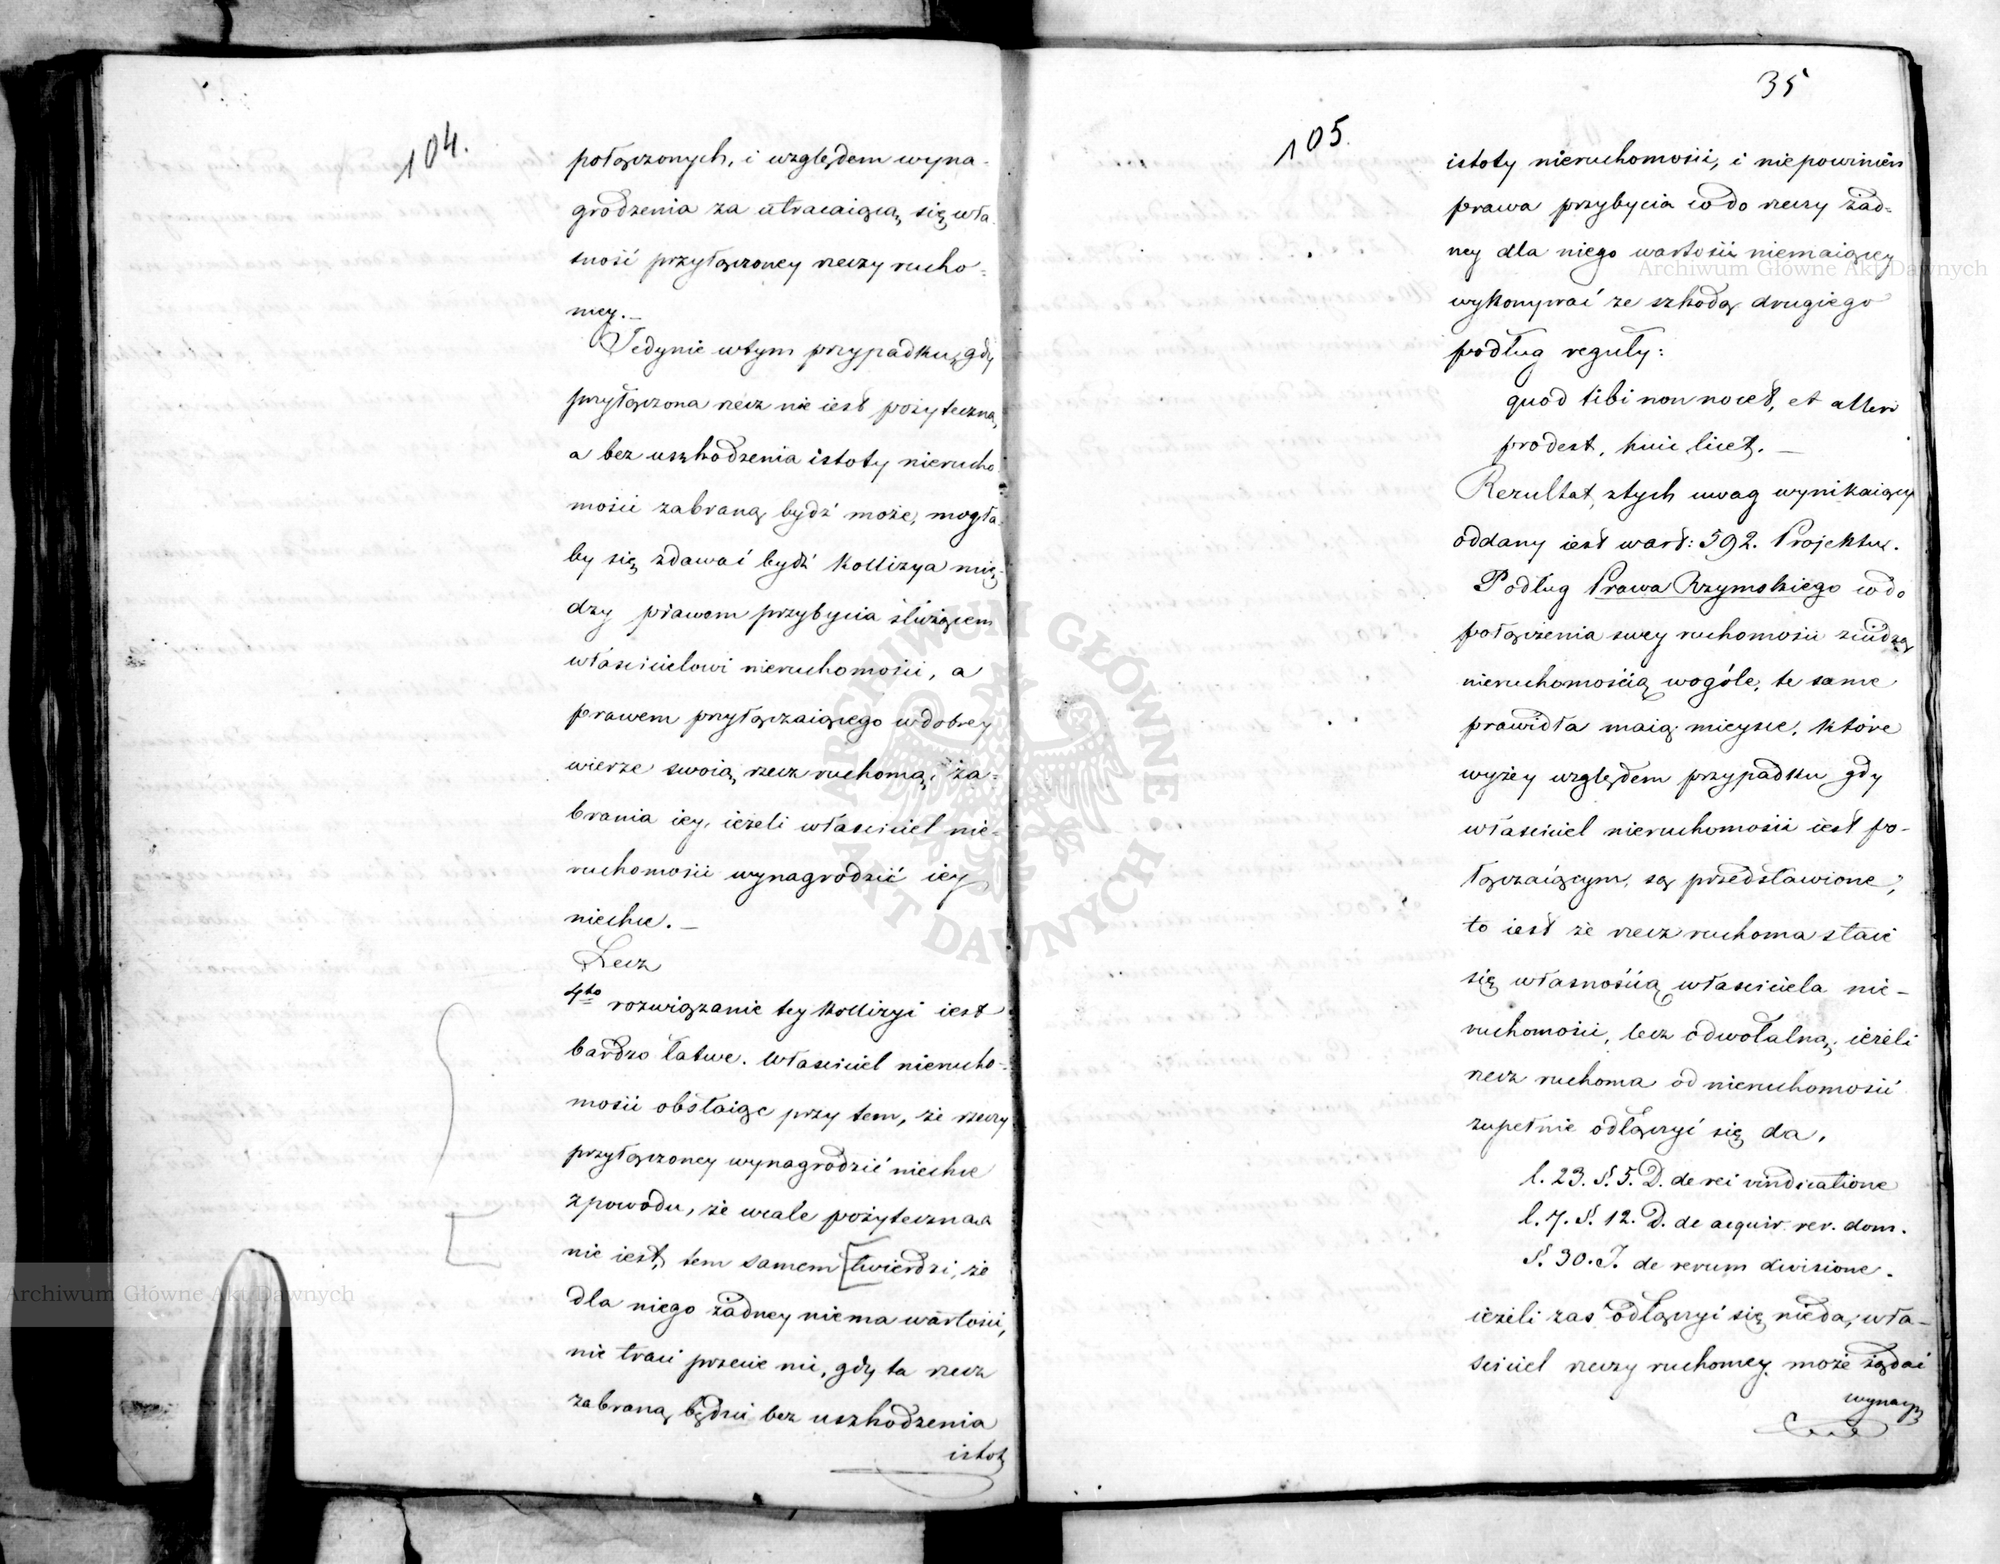 104.
połączonych, i względem wyna-
grodzenia za utracaiącą się wła-
sność przyłączoney rzeczy rucho-
mey.—
Jedynie wtym przypadku, gdy
przyłączona rzecz nie iest pożyteczna,
a bez uszkodzenia istoty nierucho
mości zabraną bydź może, mogła-
by się zdawać bydź kollizya mię-
dzy prawem przybycia służącem
właścicielowi nieruchomości, a
prawem przyłączaiącego wdobrey
wierze swoią rzecz ruchomą, za-
brania iey, ieżeli właściciel nie-
ruchomości wynagrodzić iey
niechce.—
Lecz
4to rozwiązanie tey kollizyi iest
bardzo łatwe. Właściciel nierucho-
mości obstaiąc przy tem, że rzeczy
przyłączoney wynagrodzić niechce
zpowodu, że wcale pożyteczna
nie iest, tem samem [twierdzi, że
dla niego żadney niema wartości,
nie traci przecie nic, gdy ta rzecz
zabraną będzie bez uszkodzenia
istot
35
105.
istoty nieruchomości, i niepowinien
prawa przybycia codo rzeczy żad-
ney dla niego wartości niemaiącey
wykonywać ze szkodą drugiego
podług reguły:
quod tibi non nocet, et alteri
prodest, huic licet.—
Rezultat, ztych uwag wynikaiący
oddany iest wart: 592. Projektu.
Podług Prawa Rzymskiego codo
połączenia swey ruchomości zcudzą
nieruchomością wogóle, te same
prawidła maią mieysce, które
wyżey względem przypadku gdy
właściciel nieruchomości iest po-
łączaiącym, są przedstawione,
to iest że rzecz ruchoma staie
się własnością właściciela nie-
ruchomości, lecz odwołalną, ieżeli
rzecz ruchoma od nieruchomości
zupełnie odłączyć się da.
l. 23. §. 5. D. de rei vindicatione
l. 7. §. 12. D. de acquir. rer. dom.
§. 30. J. de rerum divisione.
ieżeli zaś odłączyć się nieda, wła-
ściciel rzeczy ruchomey może żądać
Archiwum Główne Akt Dawnych
Archiwum Główne Akt Dawnych
ARCHIWUM GŁÓWNE AKT DAWNYCH